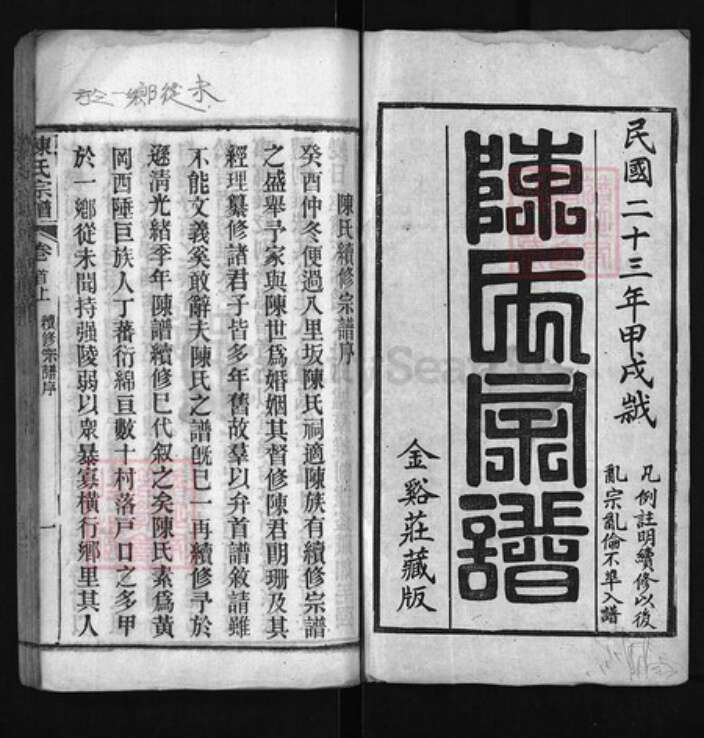 民國二十三年甲戌歲
凡例註明續修以後
亂宗亂倫不準入譜
陳氏宗譜
金谿莊藏版
未從鄉一於
陳氏續修宗譜序
癸酉仲冬便過八里坂陳氏祠適陳族有續修宗譜
之盛舉予家與陳世爲婚姻其督修陳君明珊及其
經理纂修諸君子皆多年舊故羣以弁首譜敘請雖
不能文義奚敢辭夫陳氏之譜旣已一再續修予於
遜清光緒季年陳譜續修已代敘之矣陳氏素爲黃
岡西陲巨族人丁蕃衍綿亘數十村落戶口之多甲
於一鄉從未聞持强陵弱以衆暴寡橫行鄉里其人
陳氏宗譜 卷首上 續修宗譜序 一